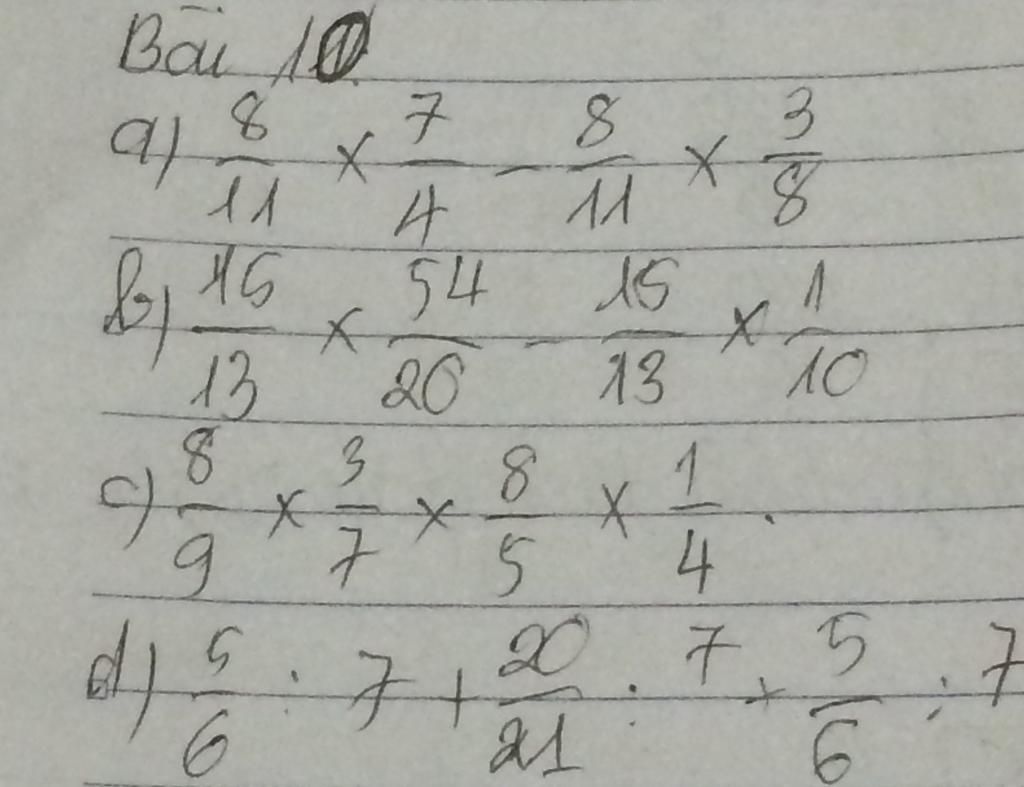 Bài 10
a) 8/11 × 7/4 - 8/11 × 3/8
b) 15/13 × 54/20 - 15/13 × 1/10
c) 8/9 × 3/7 × 8/5 × 1/4.
d) 5/6 : 7 + 20/21 : 7 + 5/6 : 7